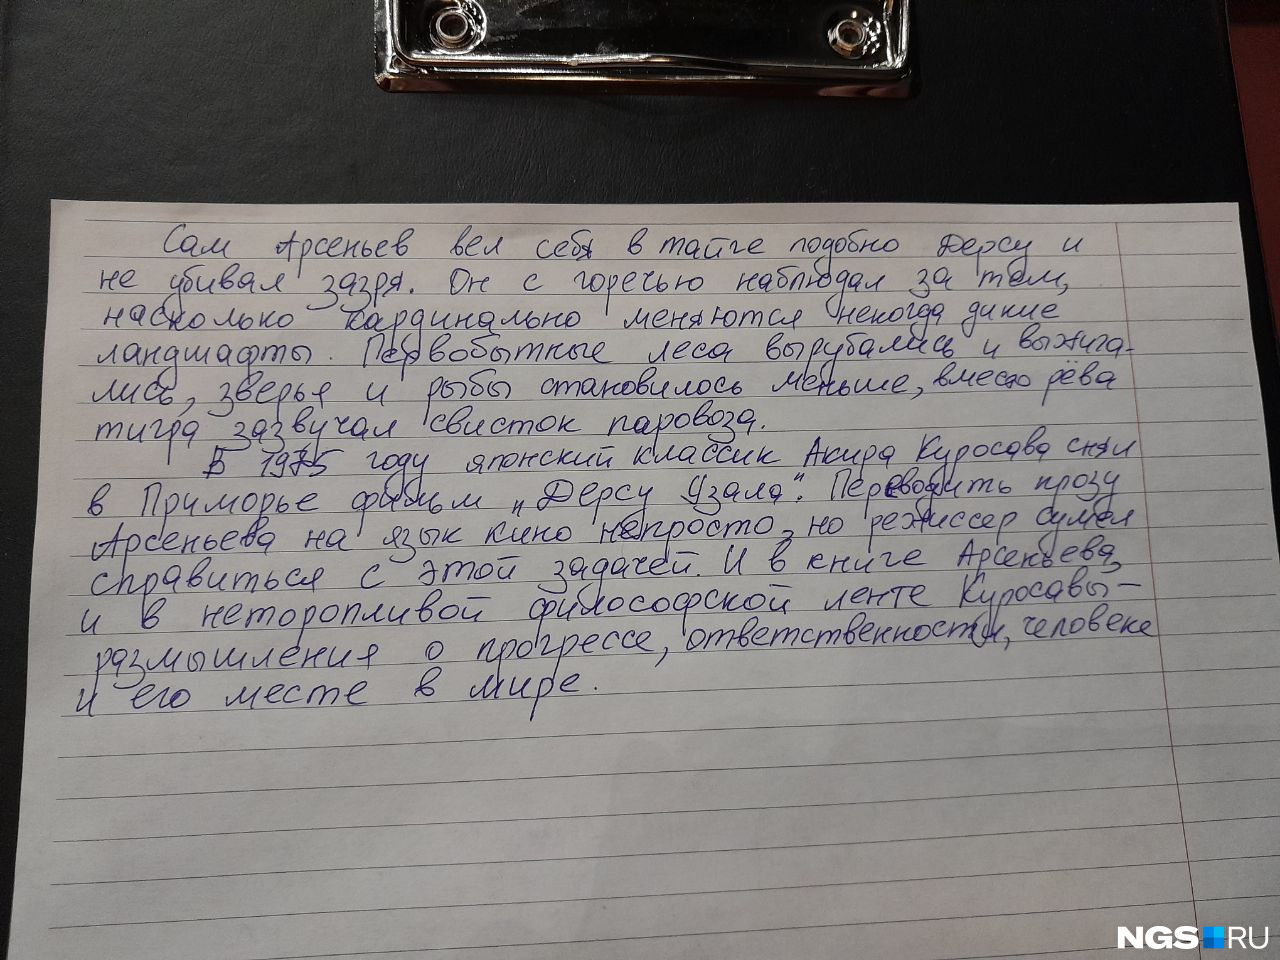 Сам Арсеньев вел себя в тайге подобно Дерсу и
не убивал зазря. Он с горечью наблюдал за тем,
насколько кардинально меняются некогда дикие
ландшафты. Первобытные леса вырубались и выжига-
лись, зверья и рыбы становилось меньше, вместо рёва
тигра зазвучал свисток паровоза.
В 1975 году японский классик Акира Куросава снял
в Приморье фильм „Дерсу Узала". Переводить прозу
Арсеньева на язык кино непросто, но режиссер сумел
справиться с этой задачей. И в книге Арсеньева,
и в неторопливой философской ленте Куросавы –
размышления о прогрессе, ответственности, человеке
и его месте в мире.
NGS.RU